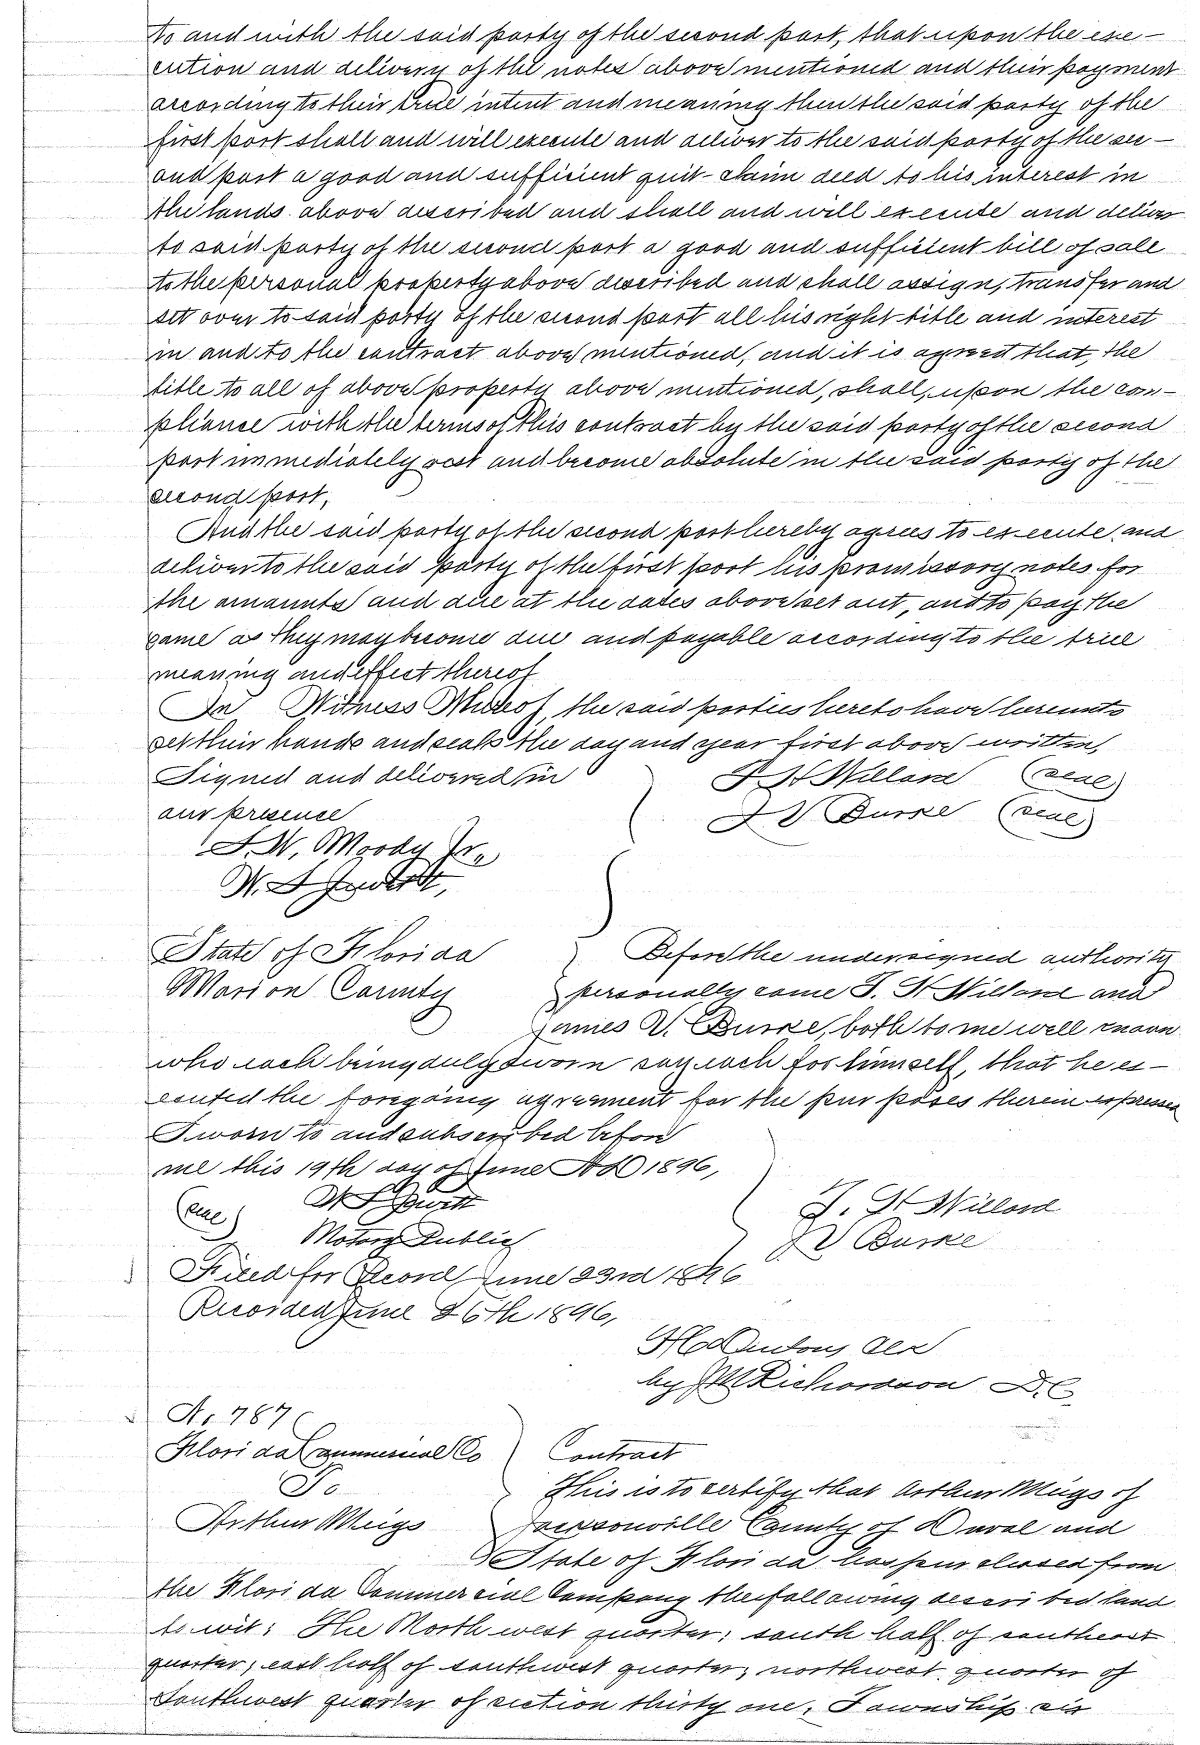 to and with the said party of the second part, that upon the exe-
cution and delivery of the notes above mentioned and their payment
according to their true intent and meaning then the said party of the
first part shall and will execute and deliver to the said party of the sec-
ond part a good and sufficient quit-claim deed to his interest in
the lands above described and shall and will execute and deliver
to said party of the second part a good and sufficient bill of sale
to the personal property above described and shall assign, transfer and
set over to said party of the second part all his right title and interest
in and to the contract above mentioned, and it is agreed that, the
title to all of above property above mentioned, shall, upon the com-
pliance with the terms of this contract by the said party of the second
part immediately vest and become absolute in the said party of the
second part,
And the said party of the second part hereby agrees to execute and
deliver to the said party of the first part his promissory notes for
the amounts and due at the dates above set out, and to pay the
same as they may become due and payable according to the true
meaning and effect thereof
In Witness Whereof, the said parties hereto have hereunto
set their hands and seals the day and year first above written,
Signed and delivered in
our presence
Willard (seal)
J V Burke (seal)
S. W. Moody Jr.
State of Florida
Marion County
Before the undersigned authority
personally came Willard and
James V. Burke, both to me well known
who each being duly sworn say each for himself, that he ex-
ecuted the foregoing agreement for the purposes therein expressed
Sworn to and subscribed before
me this 19th day of June AD 1896,
(seal)
Notary Public
Willard
J V Burke
Filed for Record June 23rd 1896
Recorded June 26th 1896,
by Richardson D.C.
No 787
Florida Commercial Co
To
Arthur Meigs
Contract
This is to certify that Arthur Meigs of
Jacksonville County of Duval and
State of Florida has purchased from
the Florida Commercial Company the following described land
to wit: The North west quarter; south half of southeast
quarter; east half of southwest quarter; northwest quarter of
Southwest quarter of section thirty one, Township six